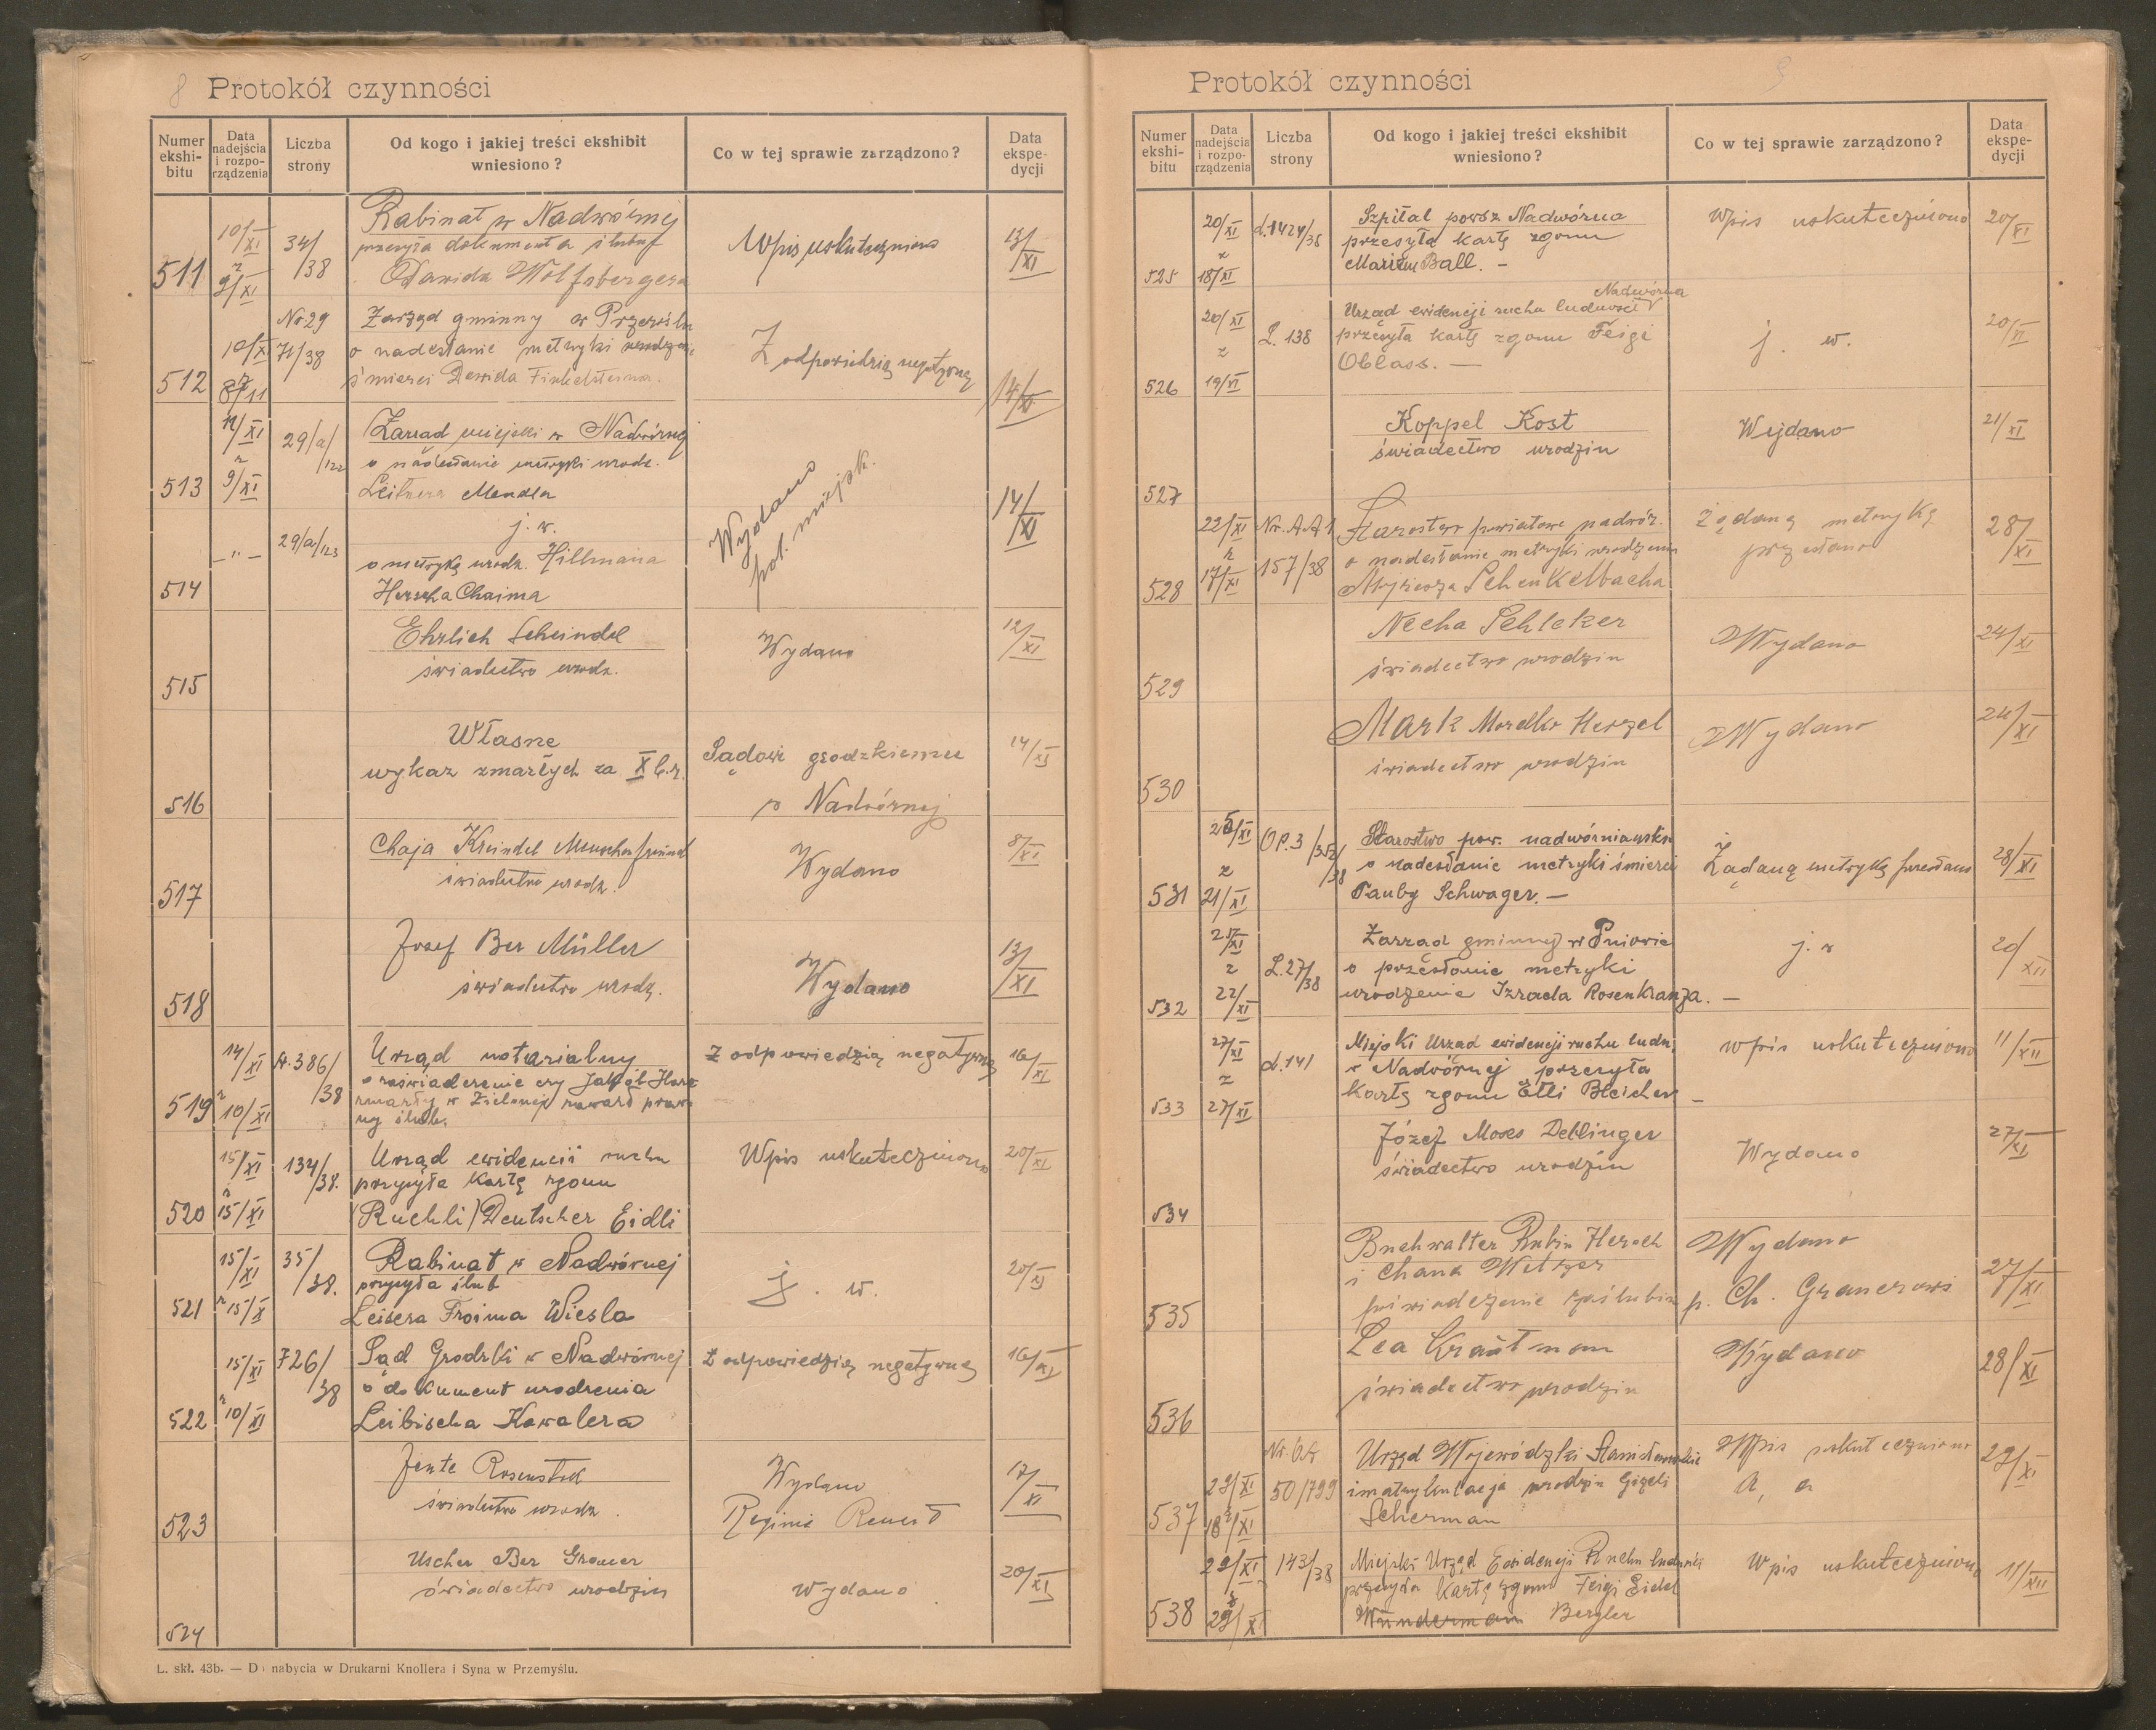 8 Protokół czynności
Numer ekshi-bitu
Data nadejścia i rozpo-rządzenia
Liczba strony
Od kogo i jakiej treści ekshibit wniesiono?
Co w tej sprawie zarządzono?
Data ekspe-dycji
511 10/XI z 9/XI 34/38
Rabinat w Nadwórnej
przesyła dokumenta ślubu
Dawida Wolfsbergera
Wpis uskuteczniono
13/XI
512 10/XI z 8/11 Nr 29 71/38
Zarząd gminny w Przeroślu
o nadesłanie metryki
śmierci Dawida Finkelsteina.
Z odpowiedzią negatywną
14/XI
513 11/XI z 9/XI 29/a/122
Zarząd miejski w Nadwórnej
o nadesłanie metryki urodz.
Leitnera Mendla
Wydano
pol. miejsk.
14/XI
514 - " - 29/a/123
j. w.
o metrykę urodz. Hillmana
Herscha Chaima
515
Ehrlich Scheindel
świadectwo urodz.
Wydano
12/XI
516
Własne
wykaz zmarłych za X b.r.
Sądowi grodzkiemu
w Nadwórnej
14/XI
517
Chaja Kreindel Menschenfreund
świadectwo urodz.
Wydano
8/XI
518
Josef Ber Müller
świadectwo urodz.
Wydano
13/XI
519 14/XI z 10/XI N. 386/38
Urząd notarialny
o zaświadczenie czy Jakób Horn
zmarły w Zielonej zawarł praw-
ny ślub.
Z odpowiedzią negatywną
16/XI
520 15/XI z 15/XI 134/38.
Urząd ewidencji ruchu
przysyła kartę zgonu
(Ruchli) Deutscher Eidli
Wpis uskuteczniono
20/XI
521 15/XI z 15/X 35/38.
Rabinat w Nadwórnej
przysyła ślub
Leisera Froima Wiesla
j. w.
20/XI
522 15/XI z 10/XI 726/38
Sąd Grodzki w Nadwórnej
o dokument urodzenia
Leibischa Kawalera
Z odpowiedzią negatywną
16/XI
523
Jente Rosenstock
świadectwo urodz.
Wydano
Reginie
17/XI
524
Uscher Ber Gramer
świadectwo urodzin
Wydano
20/XI
L. skł. 43b. — Do nabycia w Drukarni Knollera i Syna w Przemyślu.
Protokół czynności 9
Numer ekshi-bitu
Data nadejścia i rozpo-rządzenia
Liczba strony
Od kogo i jakiej treści ekshibit wniesiono?
Co w tej sprawie zarządzono?
Data ekspe-dycji
525 20/XI z 18/XI d. 1424/38
Szpital powsz Nadwórna
przesyła kartę zgonu
Ball. —
Wpis uskuteczniono
20/XI
526 20/XI z 19/XI L. 138
Nadwórna
Urząd ewidencji ruchu ludności
przesyła kartę zgonu Feigi
Oblass. —
j. w.
20/XI
527
Koppel Kost
świadectwo urodzin
Wydano
21/XI
528 22/XI z 17/XI Nr. AA1 157/38
Starostwo powiatowe nadwór.
o nadesłanie metryki urodzenia
Mojżesza Schenkelbacha
Żądaną metrykę
przesłano
28/XI
529
Necha Schleker
świadectwo urodzin
Wydano
24/XI
530
Mark Mordko Herzel
świadectwo urodzin
Wydano
24/XI
531 25/XI z 21/XI OP. 3/352/38
Starostwo pow. nadwórniańskie
o nadesłanie metryki śmierci
Tauby Schwager. —
Żądaną metrykę przesłano
28/XI
532 25/XI z 22/XI L. 27/38
Zarząd gminnej w Pniowie
o przesłanie metryki
urodzenia Izraela Rosenkranza. —
j. w
20/XII
533 27/XI z 27/XI d. 141
Miejski Urząd ewidencji ruchu ludn.
w Nadwórnej przesyła
kartę zgonu Etli Bleicher —
Wpis uskuteczniono
11/XII
534
Józef Moses Deblinger
świadectwo urodzin
Wydano
27/XI
535
Buchwalter Rubin Hersch
i Chana Welzer
poświadczenie zaślubin
Wydano
p. Ch. Gramerowi
27/XI
536
Lea Krautman
świadectwo urodzin
Wydano
28/XI
537 29/XI z 18/XI 50/799
Urząd Wojewódzki Stanisławowskie
imatrykulacja urodzin Gizeli
Scherman
Wpis uskuteczniono
a, a
29/XI
538 29/XI z 29/XI 143/38
Miejski Urząd Ewidencji Ruchu ludności
przesyła kartę zgonu Feigi Eidel
Wundermann Bergler
Wpis uskuteczniono
11/XII